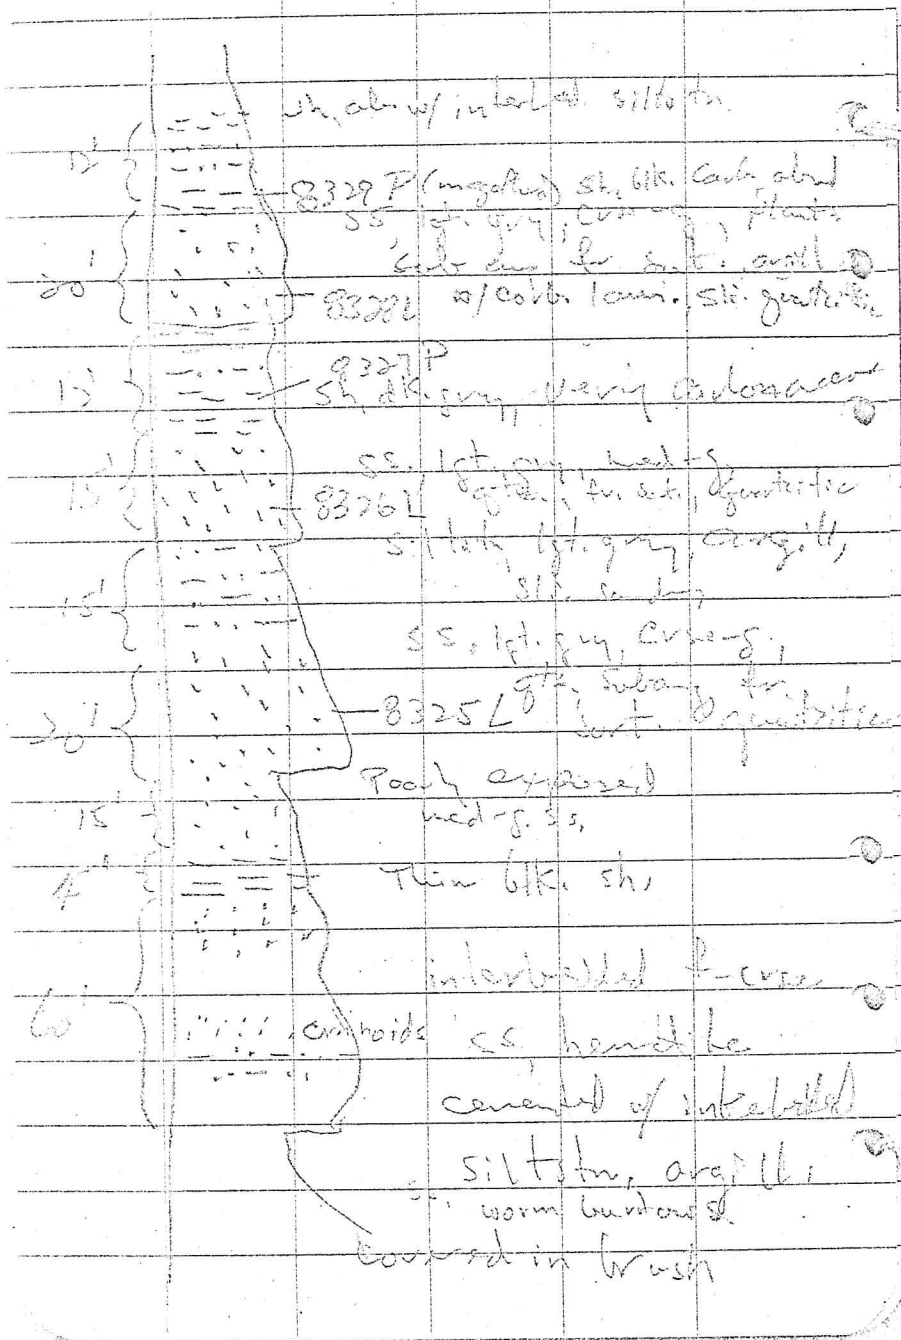 sh, abv w/ interbed. siltstn.
12'
8329 P (megaflora) sh, blk. Carb, abnd
ss, lgt. gry, crse-g, plants
20'
w/ carb. lam. sli. quartzitic
8328L
8327P
sh, dk. gry, very carbonaceous
ss. lgt. gry, med-g,
15'
8326L qtz., fr. srt., quartzitic
siltstn, lgt. gry, argill,
15'
sli. sandy
ss, lgt. gry, crse-g,
8325L qtz, subang, fr.
20'
sort. quartzitic
Poorly exposed
15'
med-g. ss,
4'
Thin blk. sh,
interbedded f-crse
60'
crinoids ss, hematite
cemented w/ interbedded
siltstn, argill,
ss, worm burrows.
covered in brush